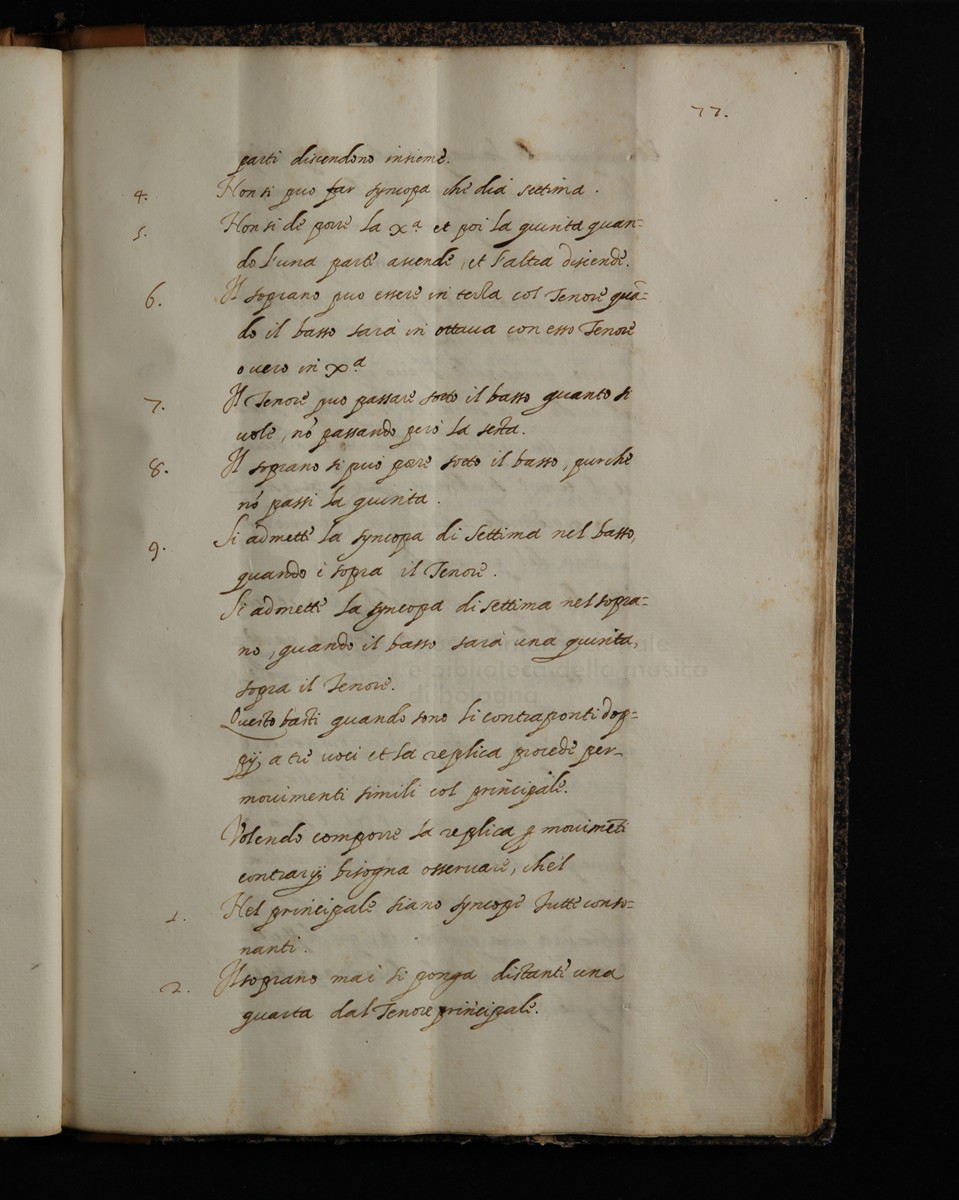 77.
parti discendono insieme.
4. Non si puo far syncopa che dia settima.
5. Non si de porre la xª et poi la quinta quan=
do l'una parte ascende, et l'altra discende.
6. Il soprano puo essere in terza col Tenore quā=
do il basso sarà in ottava con esso Tenore
overo in xª
7. Il Tenore puo passare sotto il basso quanto si
vole, nō passando però la sesta.
8. Il soprano si può porre sotto il basso, purche
nō passi la quinta.
9. Si admette la syncopa di settima nel basso,
quando è sopra il Tenore.
Si admette la syncopa di settima nel sopra=
no, quando il basso sarà una quinta,
sopra il Tenore.
Questo basti quando sono li contraponti dop=
pij, a tre voci et la replica procede per
movimenti simili col principale.
Volendo comporre la replica p movimēti
contrarij bisogna osservare, che'l
1. Nel principale siano syncope tutte conso=
nanti.
2. Il soprano mai si ponga distante una
quarta dal Tenore principale.
e biblioteca della musica
di bologna